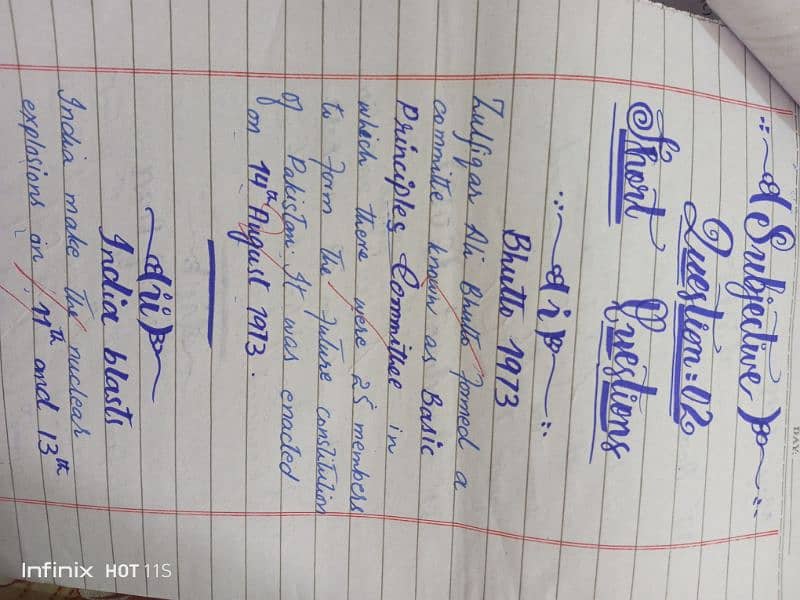 (Subjective)
Question:02
Short Questions
(i)
Bhutto 1973
Zulfiqar Ali Bhutto formed a
committe known as Basic
Principles Committee in
which there were 25 members
to form the future constitution
of Pakistan. It was enacted
on 14th August 1973.
(ii)
India blasts
India make the nuclear
explosions on 11th and 13th
DAY:
Infinix HOT 11S